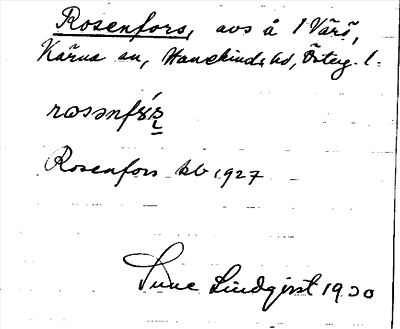 Rosenfors, avs å 1 Värö,
Kärna sn, Hanekinds hd, Österg. l.
Rosenfors kb 1927
Sune Lindqvist 1930